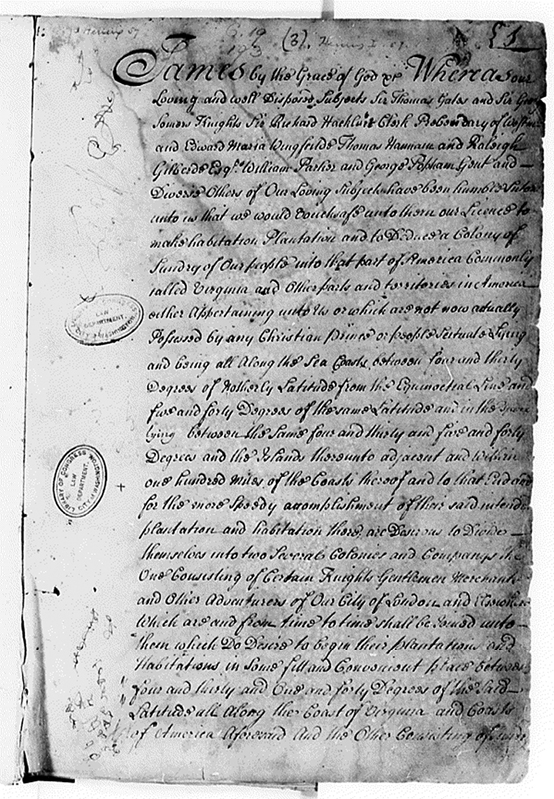 (3).
§ 1
James by the Grace of God &c Whereas our
Loving and well Disposed Subjects Sir Thomas Gates and Sir Geo
Somers Knights Sir Richard Hackluit Clerk Prebendary of Westm
and Edward Maria Wingfeilde Thomas Hannam and Raleigh
Gilberde Esqrs. William Parker and George Popham Gent and
Diverse Others of Our Loving Subjects have been humble Suitors
unto us that we would Vouchsafe unto them our Licence to
make habitation Plantation and to Deduce a Colony of
Sundry of Our people into that part of America Commonly
called Virginia and Other parts and territories in America
either Appertaining unto Us or which are not now actually
Possessed by any Christian Prince or people Scituate Lying
and being all Along the Sea Coasts between four and thirty
Degrees of Notherly Latitude from the Equinoctial Line and
five and forty Degrees of the same Latitude and in the
lying between the Same four and thirty and five and forty
Degrees and the Islands thereunto adjacent and within
one hundred miles of the Coasts thereof and to that End and
for the more Speedy accomplishment of their said intended
plantation and habitation there are Desirous to Divide
themselves into two Several Colonies and Companys the
One Consisting of Certain Knights Gentlemen Merchants
and Other Adventurers of Our City of London and
Which are and from time to time shall be Joined unto
them which Do Desire to begin their plantations and
Habitations in Some fitt and Convenient place between
four and thirty and One and forty Degrees of the said
Latitude all Along the Coast of Virginia and Coasts
of America Aforesaid And the Other Consisting of
LAW
DEPARTMENT.
LIBRARY OF CONGRESS
LAW
DEPARTMENT.
CITY OF WASHINGTON